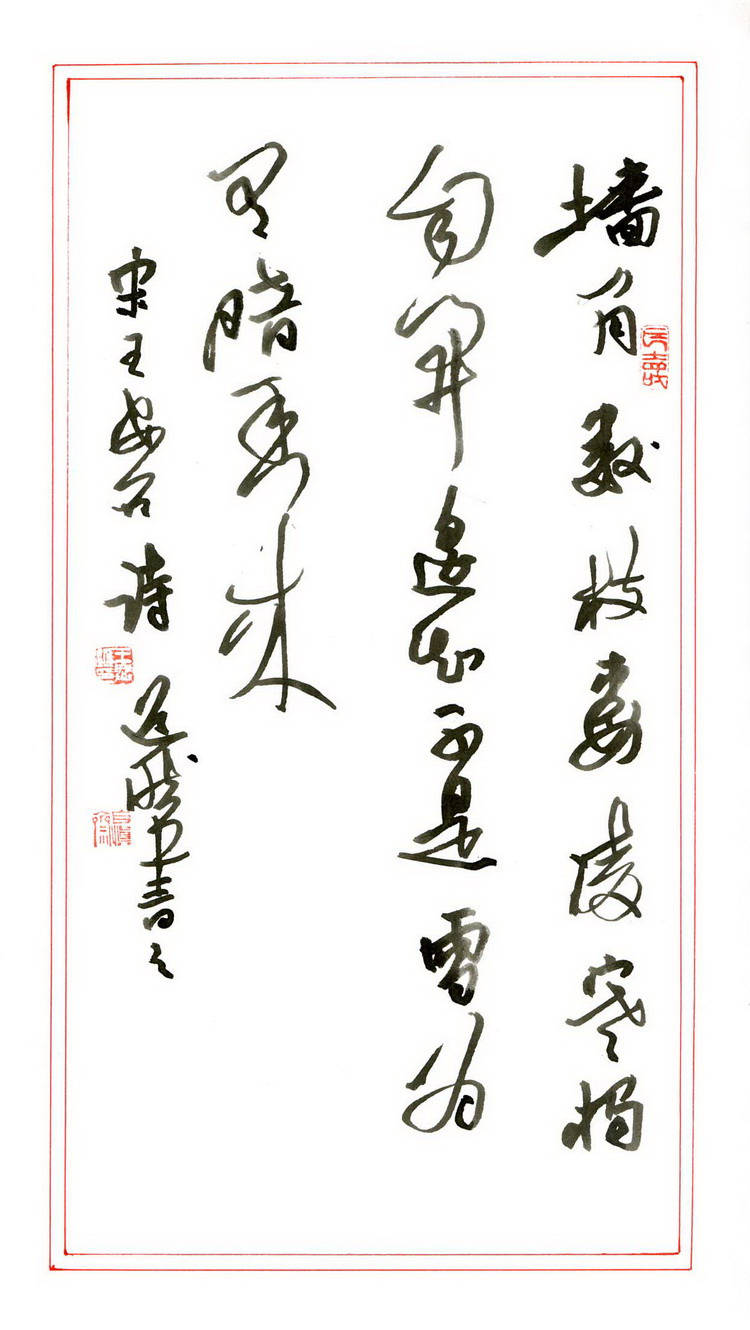 墙角数枝梅凌寒独
自開遥知不是雪为
有暗香来
宋王安石诗 书之